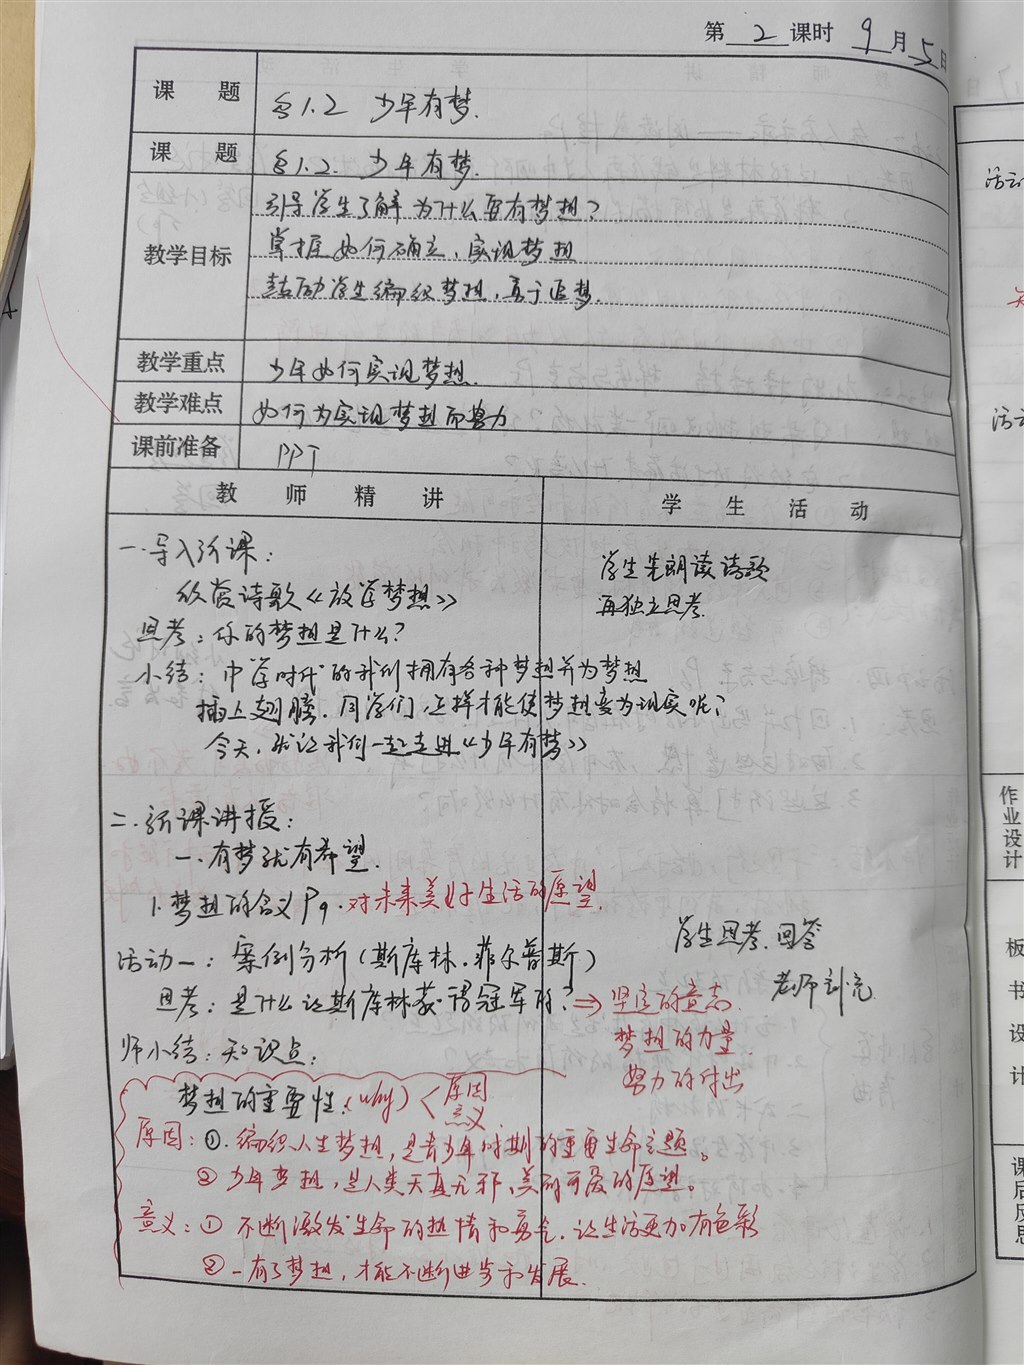 第 2 课时 9月5日
课 题 §1.2 少年有梦.
课 题 §1.2. 少年有梦.
教学目标 引导学生了解为什么要有梦想?
掌握如何确立、实现梦想
鼓励学生编织梦想,勇于追梦.
教学重点 少年如何实现梦想.
教学难点 如何为实现梦想而努力
课前准备 PPT
教 师 精 讲 学 生 活 动
一.导入新课:
欣赏诗歌《放飞梦想》
学生先朗读诗歌
再独立思考.
思考:你的梦想是什么?
小结:中学时代的我们拥有各种梦想并为梦想
插上翅膀.同学们,怎样才能使梦想变为现实呢?
今天,就让我们一起走进《少年有梦》
二.新课讲授:
一.有梦就有希望.
1.梦想的含义P9.对未来美好生活的愿望.
活动一:案例分析(斯库林.菲尔普斯)
学生思考.回答
老师补充.
思考:是什么让斯库林获得冠军的?⇒坚定的意志.
梦想的力量.
努力的付出
师小结:知识点:
梦想的重要性.(why)<原因
意义.
原因:①.编织人生梦想,是青少年时期的重要生命主题。
②少年梦想,是人类天真无邪、美丽可爱的愿望。
意义:①不断激发生命的热情和勇气,让生活更加有色彩
②有了梦想,才能不断进步和发展.
活动
活动
作业设计
板书设计
课后反思